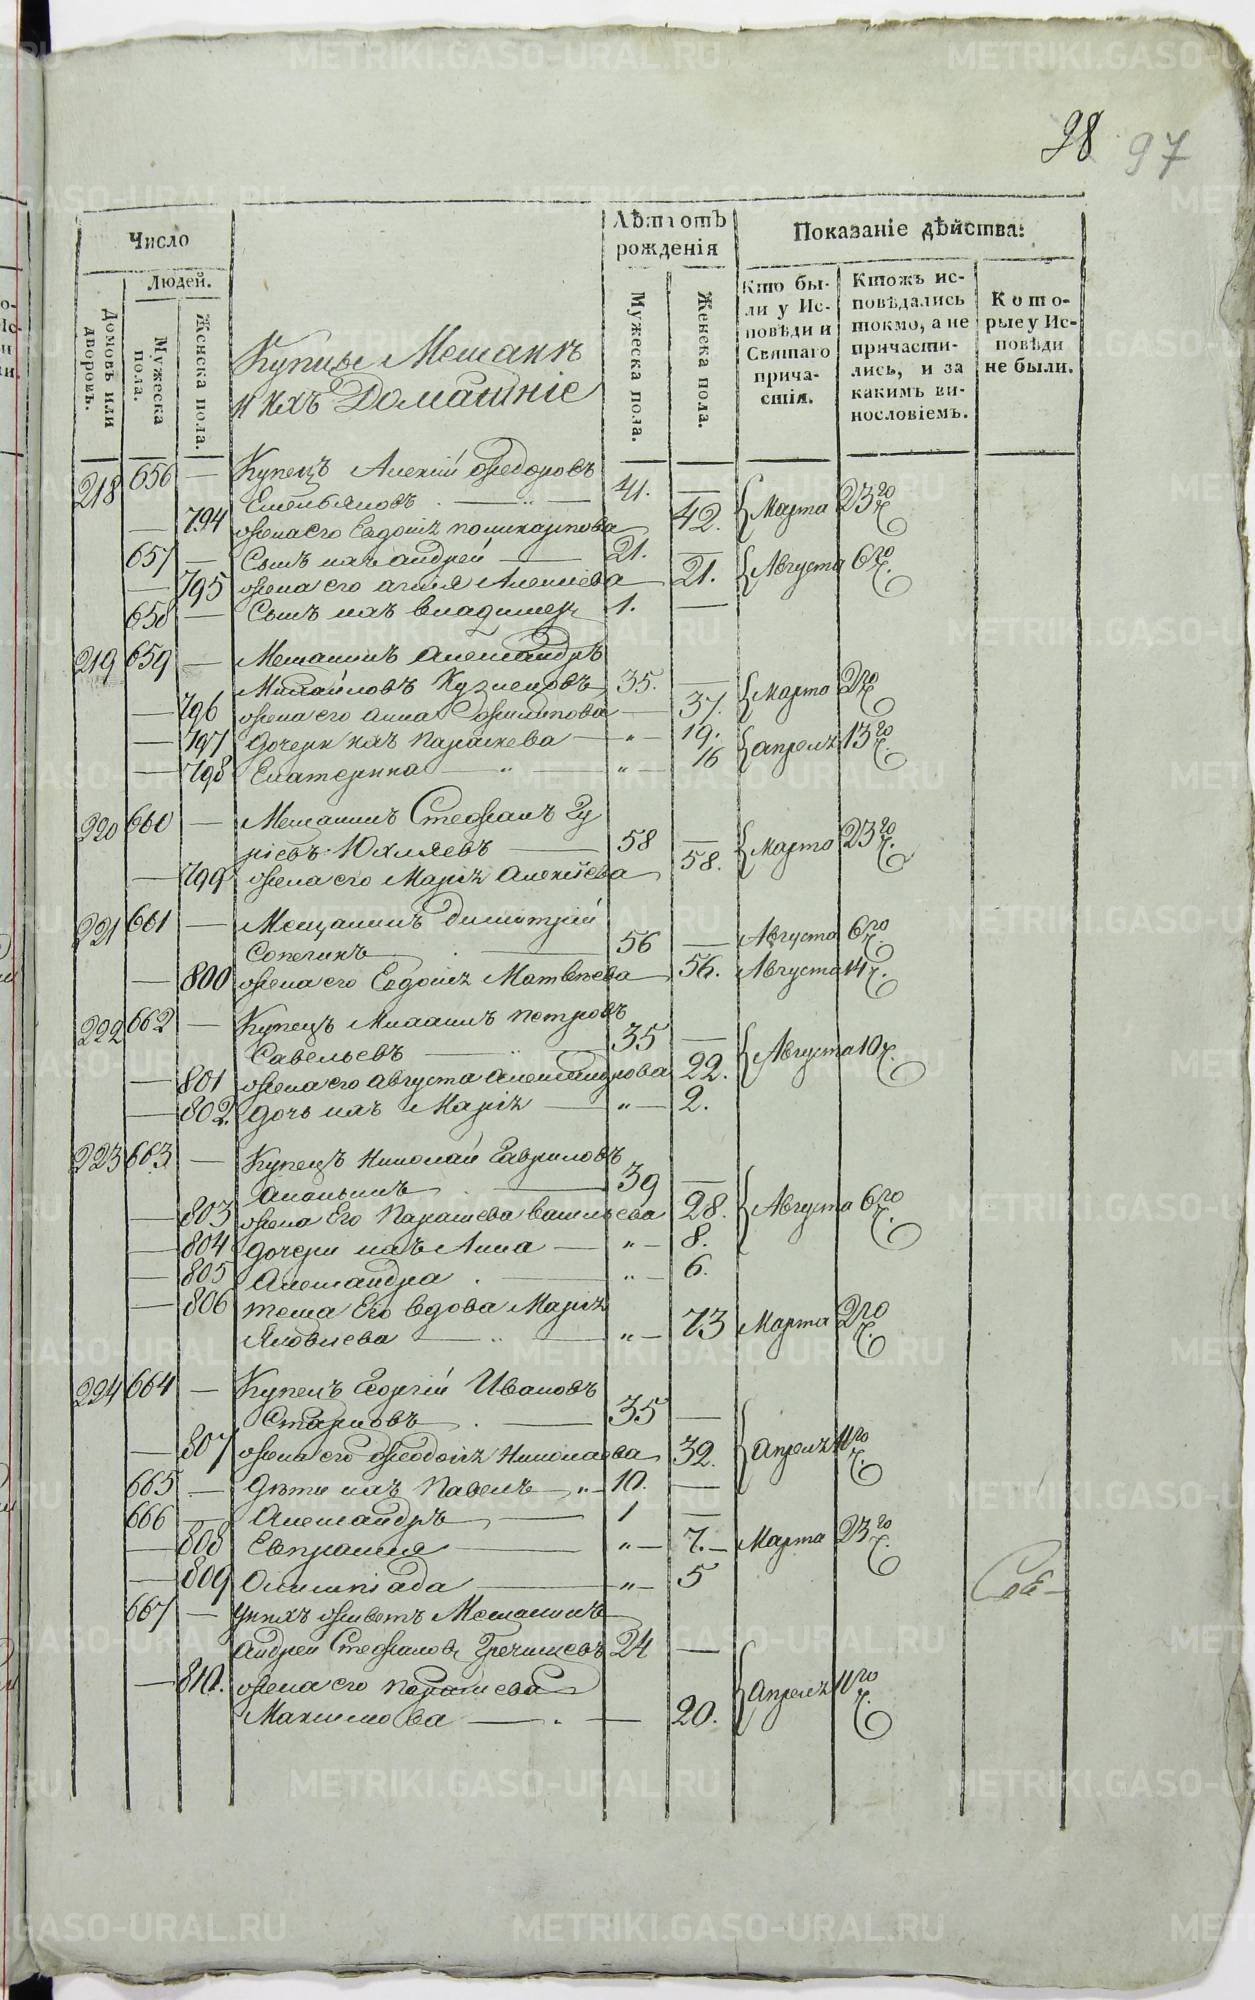 98 97
Число
Людей.
Домовъ или дворовъ.
Мужеска пола.
Женска пола.
Купцы Мещане
и ихъ Домашніе
Лѣтъ отъ рожденія
Мужеска пола.
Женска пола.
Показаніе дѣйства:
Кто бы-
ли у Ис-
повѣди и
Святаго
прича-
стія.
Ктожъ ис-
повѣдались
токмо, а не
причасти-
лись, и за
какимъ ви-
нословіемъ.
Кото-
рые у Ис-
повѣди
не были.
218 656 — Купецъ Алексій Ѳедоровъ
Емельяновъ — 41. —
— 794 жена его Евдокія Поликарпова 42. Марта 23го ч.
657 — Сынъ ихъ Андрей — 21. —
— 795 жена его Агнія Алексіева — 21. Августа 6го ч.
658 — Сынъ ихъ Владимер 1. —
219 659 — Мещанинъ Александръ
Михайловъ Кузнецовъ 35. —
— 796 жена его Анна Филипова — 37. Марта 2го ч.
— 797 дочери ихъ Параскева — „ — 19.
— 798 Екатерина — „ — „ — 16 Апреля 13го ч.
220 660 — Мещанинъ Стефанъ Гу
ріевъ — 58 —
— 799 жена его Марія Алексіева — 58. Марта 23го ч.
221 661 — Мещанинъ Димитрій
Сопегинъ — 56 — Августа 6го ч.
— 800 жена его Евдокія Матвѣева — 56. Августа 14 ч.
222 662 — Купецъ Михаилъ Петровъ
Савельевъ — „ — 35 —
— 801 жена его Августа Александрова 22. Августа 10 ч.
— 802. дочь ихъ Марія — „ — 2.
223 663 — Купецъ Николай Гавриловъ
Ананьинъ — 39 —
— 803 жена Его Параскева Васильева 28. Августа 6го ч.
— 804 дочери ихъ Анна — „ — 8.
— 805 Александра — „ — 6.
— 806 теща Его вдова Марія
Яковлева — „ — „ — 73 Марта 2го ч.
224 664 — Купецъ Георгій Ивановъ
Старковъ — 35 —
— 807 жена его Ѳеодосія Николаева 32. Апреля 11го ч.
665 — дѣти ихъ Павелъ — „ — 10. —
666 — Александръ — 1 —
— 808 Евпраксия — „ — 7. — Марта 23го ч.
— 809 Олимпіада — „ — 5
667 — у нихъ живетъ Мещанинъ
Андрей Стефановъ 24 —
— 810. жена его Параскева
Максимова — . — 20. Апреля 11го ч.